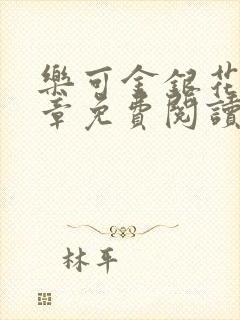 樂可金銀花
章免費閱讀
林平